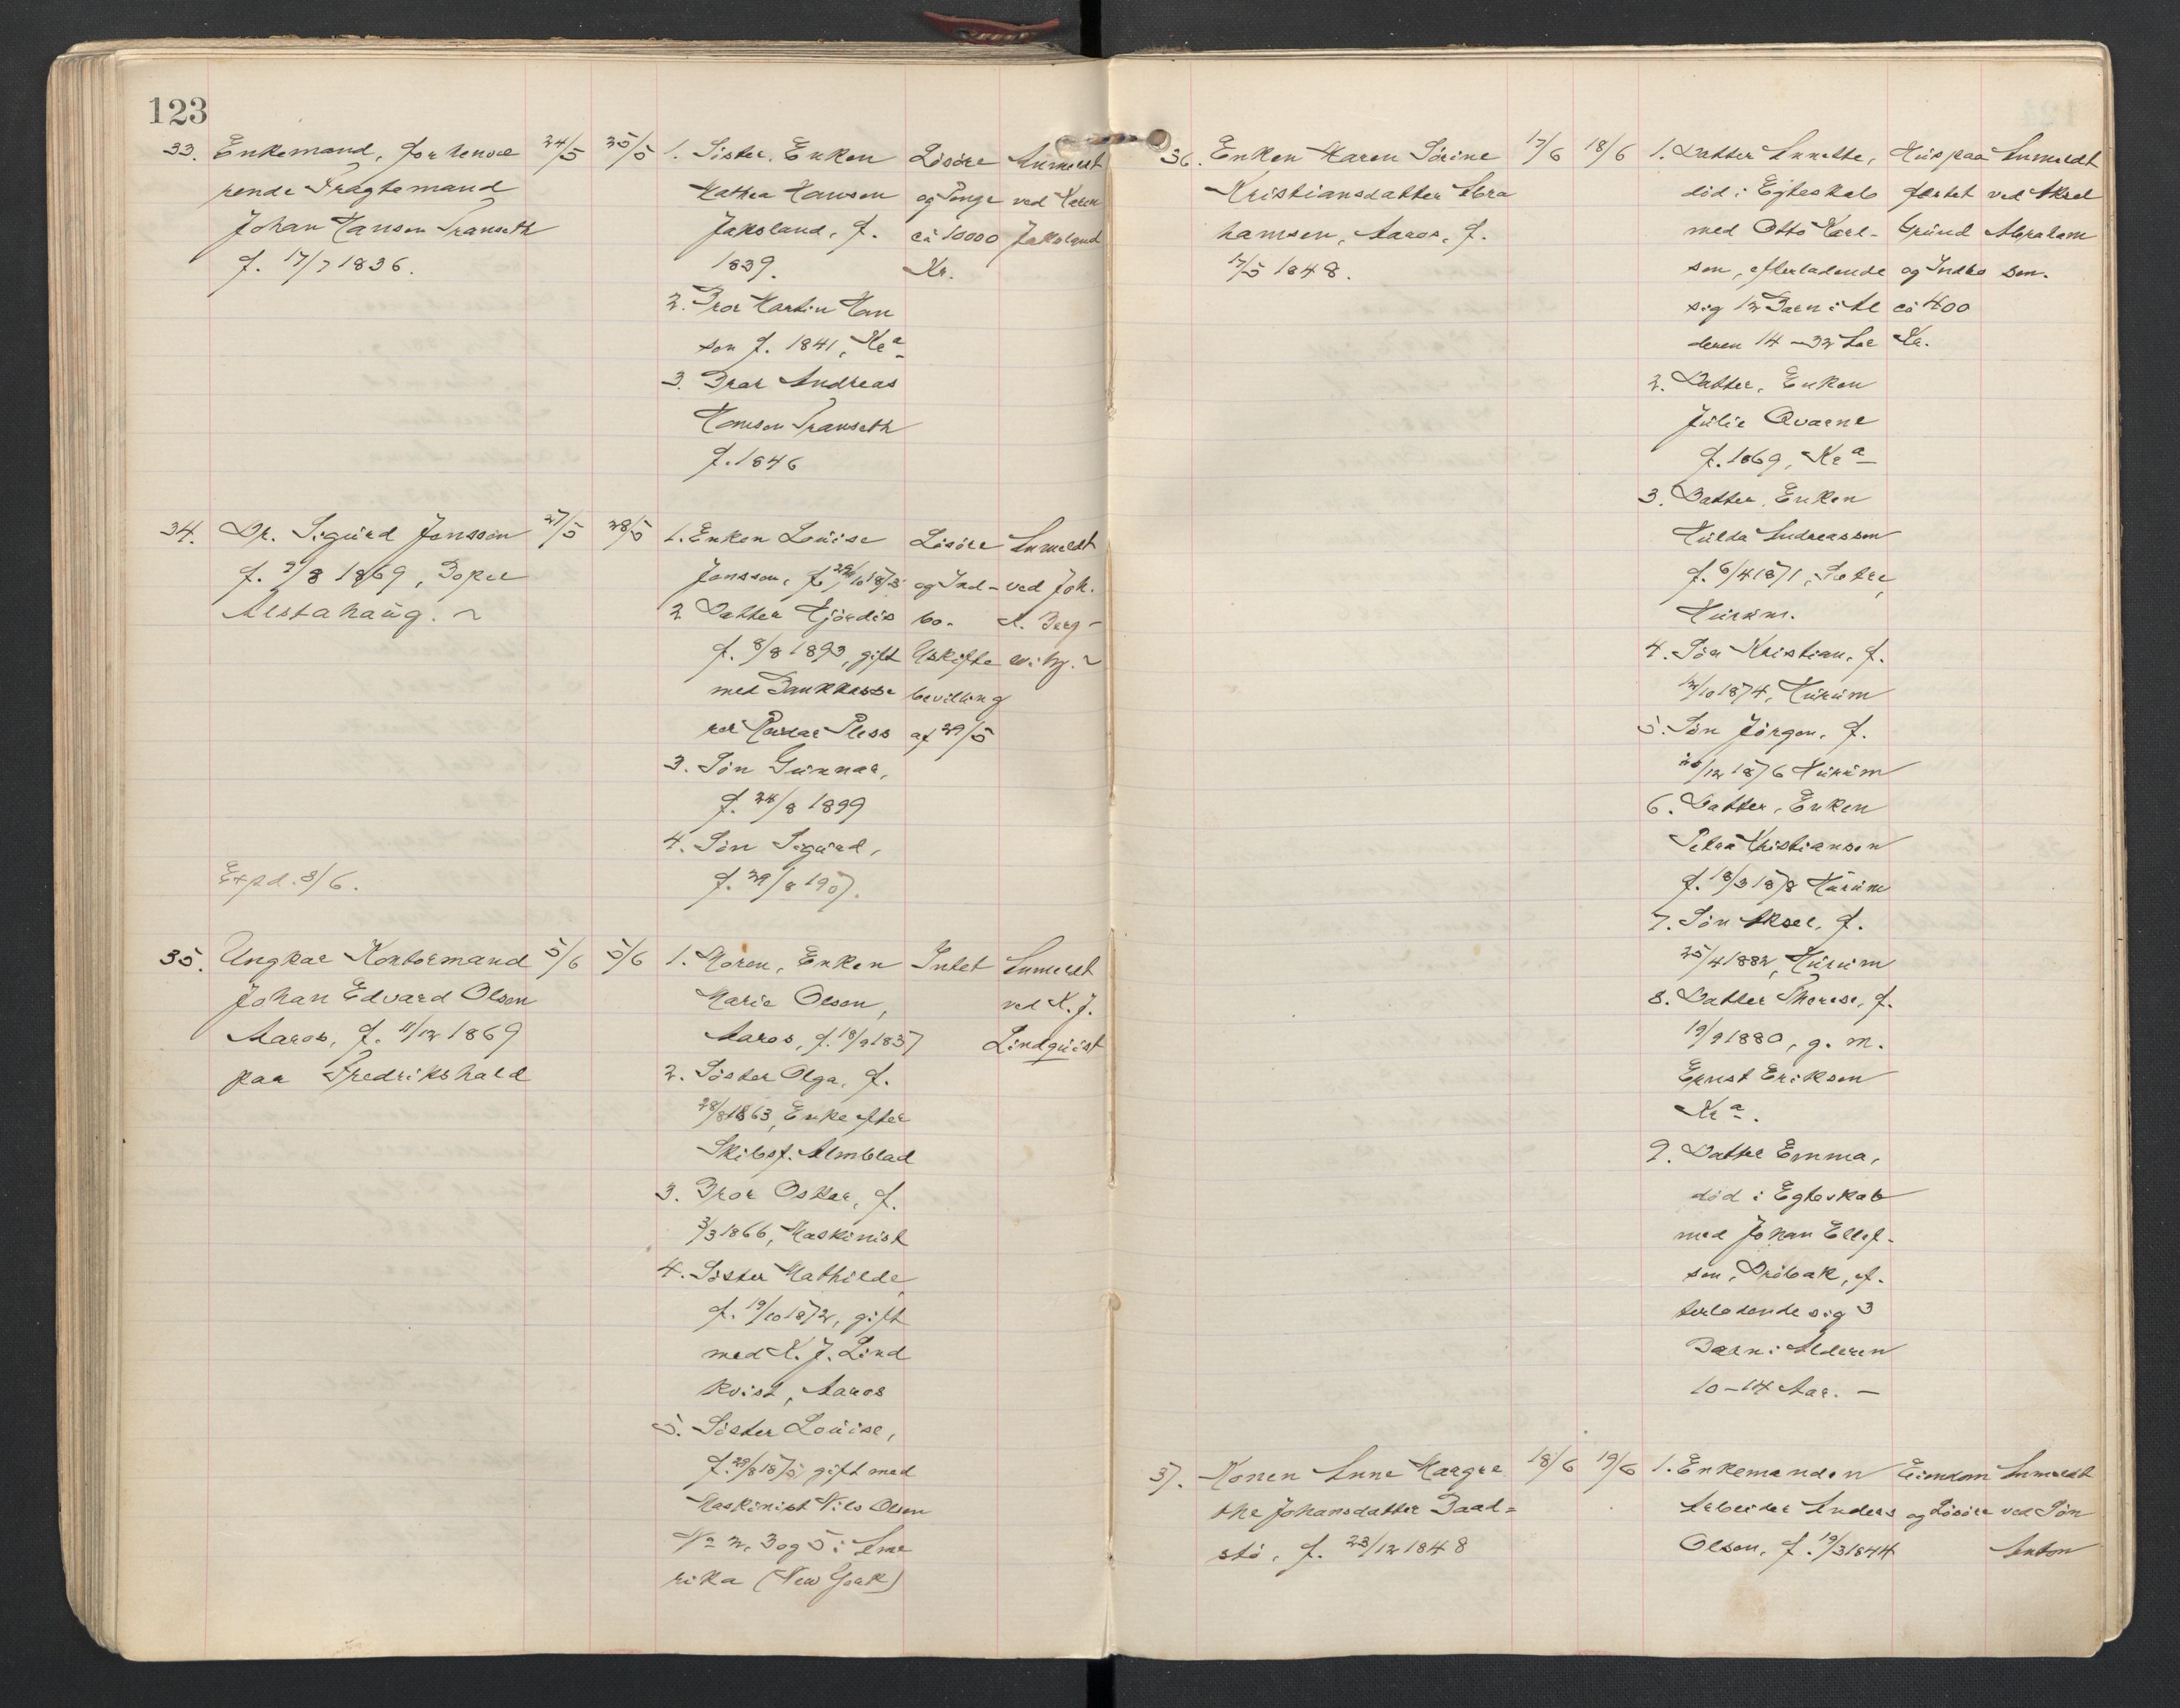 123
33. Enkemand, forhenvæ
rende Fragtemand
Johan Hansen Transeth
f. 17/7 1836.
24/5 25/5
1. Sister, Enken
Mathea Hansen
Jaksland, f.
1839.
2. Bror Martin Han
sen f. 1841, Kr.a
3. Bror Andreas
Hansen Transeth
f. 1846
Lösöre
og Penge
ca 10000
Kr.
Anmeldt
ved Karen
Jaksland
34. Dr. Sigurd Jonsson
f. 9/8 1869, Boper
Alstahaug.
Expd. 8/6.
27/5 28/5
1. Enken Louise
Jonsson, f. 29/10 1873
2 Datter Hjördis
f. 8/8 1893, gift
med Bankkasse
rer Pless
3. Sön Gunnar,
f. 24/8 1899
4. Sön Sigurd,
f. 29/8 1907.
Lösöre
og Ind-
bo.
Uskifte
bevilling
af 29/5
Anmeldt
ved Joh.
A. Berg-
witz.
35. Ungkar Kontormand
Johan Edvard Olsen
Aaros, f. 11/12 1869
paa Fredrikshald
5/6 5/6
1. Moren, Enken
Marie Olsen,
Aaros, f. 18/9 1837
2. Söster Olga, f.
28/8 1863, Enke efter
Skibsf. Almblad
3. Bror Oskar, f.
3/3 1866, Maskinist
4. Söster Mathilde,
f. 19/10 1872, gift
med K. J. Lind
kvist, Aaros
5. Söster Louise,
f. 29/8 1875 gift med
Maskinist Nils Olsen
No 2, 3 og 5 i Ame
rika (New York)
Intet
Anmeldt
ved K. J.
Lindquist
36. Enken Karen Sörine
Kristiansdatter Abra
hamsen, Aaros, f.
17/5 1848.
17/6 18/6
1. Datter Annette,
död i Egteskab
med Otto Karl-
sen, efterladende
sig 12 Barn i Al
deren 14-32 Aar
2. Datter, Enken
Julie Qvarne
f. 1869, Kr.a
3. Datter, Enken
Hilda Andreassen
f. 6/4 1871, Sætre,
Hurum.
4. Sön Kristian, f.
12/10 1874, Hurum
5. Sön Jörgen, f.
/12 1876 Hurum
6. Datter, Enken
Petra Kristiansen
f. 18/3 1878 Hurum
7. Sön Aksel, f.
25/4 1882, Hurum
8. Datter Therese, f.
19/9 1880, g. m.
Ernst Eriksen
Kr.a.
9. Datter Emma,
död i Egteskab
med Johan Ellef-
sen, Dröbak, ef-
terladende sig 3
Barn i Alderen
10-14 Aar. -
Hus paa
fæstet
Grund
og Indbo
ca 400
Kr.
Anmeldt
ved Aksel
Abraham
sen.
37. Konen Anne Margre
the Johansdatter Baad-
stö, f. 23/12 1848
18/6 19/6
1. Enkemanden
Arbeider Anders
Olsen, f. 19/3 1844
Eiendom
og Lösöre
Anmeldt
ved Sön
Anton